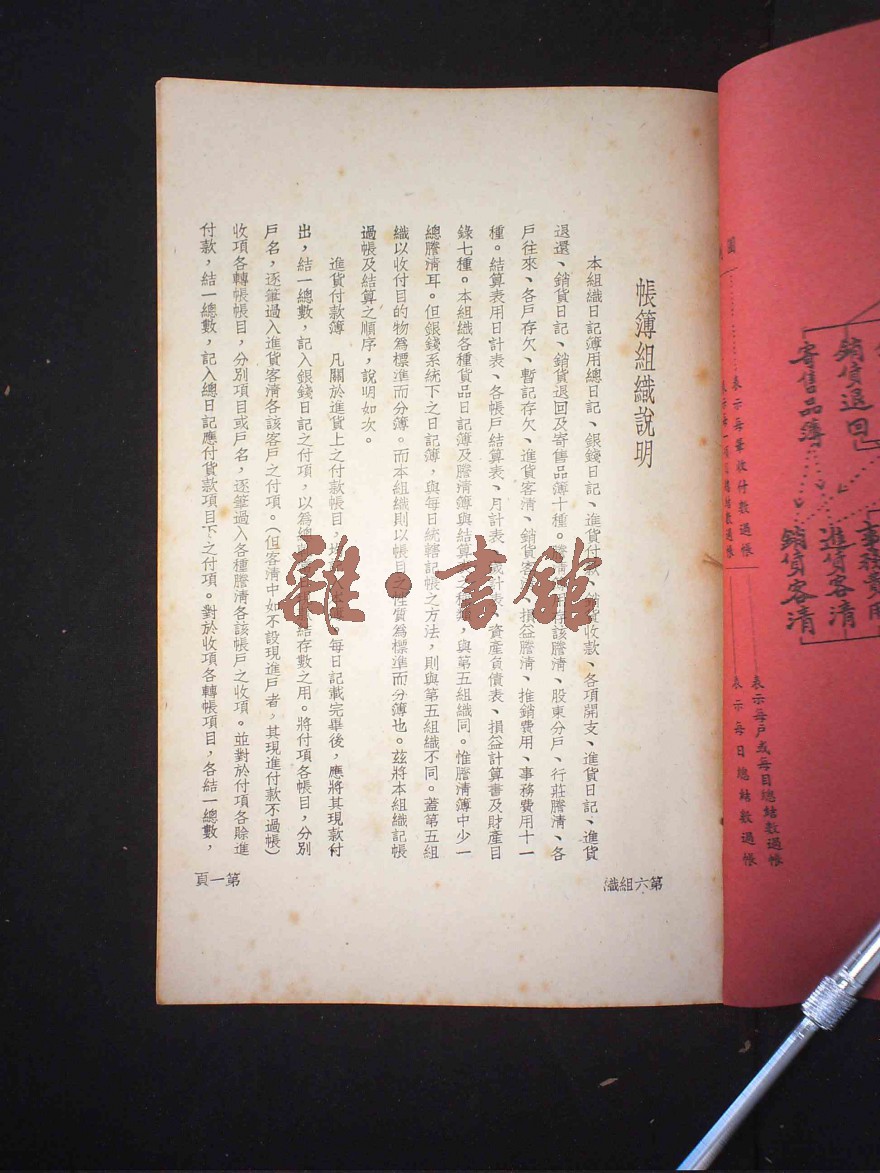 帳簿組織說明
本組織日記簿用總日記、銀錢日記、進貨付款、銷貨收款、各項開支、進貨日記、進貨
退還、銷貨日記、銷貨退回及寄售品簿十種。謄清帳用存該謄清、股東分戶、行莊謄清、各
戶往來、各戶存欠、暫記存欠、進貨客清、銷貨客清、損益謄清、推銷費用、事務費用十一
種。結算表用日計表、各帳戶結算表、月計表、歲計表、資產負債表、損益計算書及財產目
錄七種。本組織各種貨品日記簿及謄清簿與結算表之種類,與第五組織同。惟謄清簿中少一
總謄清耳。但銀錢系統下之日記簿,與每日統轄記帳之方法,則與第五組織不同。蓋第五組
織以收付目的物為標準而分簿。而本組織則以帳目之性質為標準而分簿也。茲將本組織記帳
過帳及結算之順序,說明如次。
進貨付款簿 凡關於進貨上之付款帳目,每日記載完畢後,應將其現款付
出,結一總數,記入銀錢日記之付項,以為總結存數之用。將付項各帳目,分別
戶名,逐筆過入進貨客清各該客戶之付項。(但客清中如不設現進戶者,其現進付款不過帳)
收項各轉帳帳目,分別項目或戶名,逐筆過入各種謄清各該帳戶之收項。並對於付項各賒進
付款,結一總數,記入總日記應付貨款項目下之付項。對於收項各轉帳項目,各結一總數,
第六組織
第一頁
雜·書館
圖
銷貨退回
寄售品簿
事務費用
進貨客清
銷貨客清
表示每筆收付數過帳
表示每戶或每目總結數過帳
表示每日總結數過帳